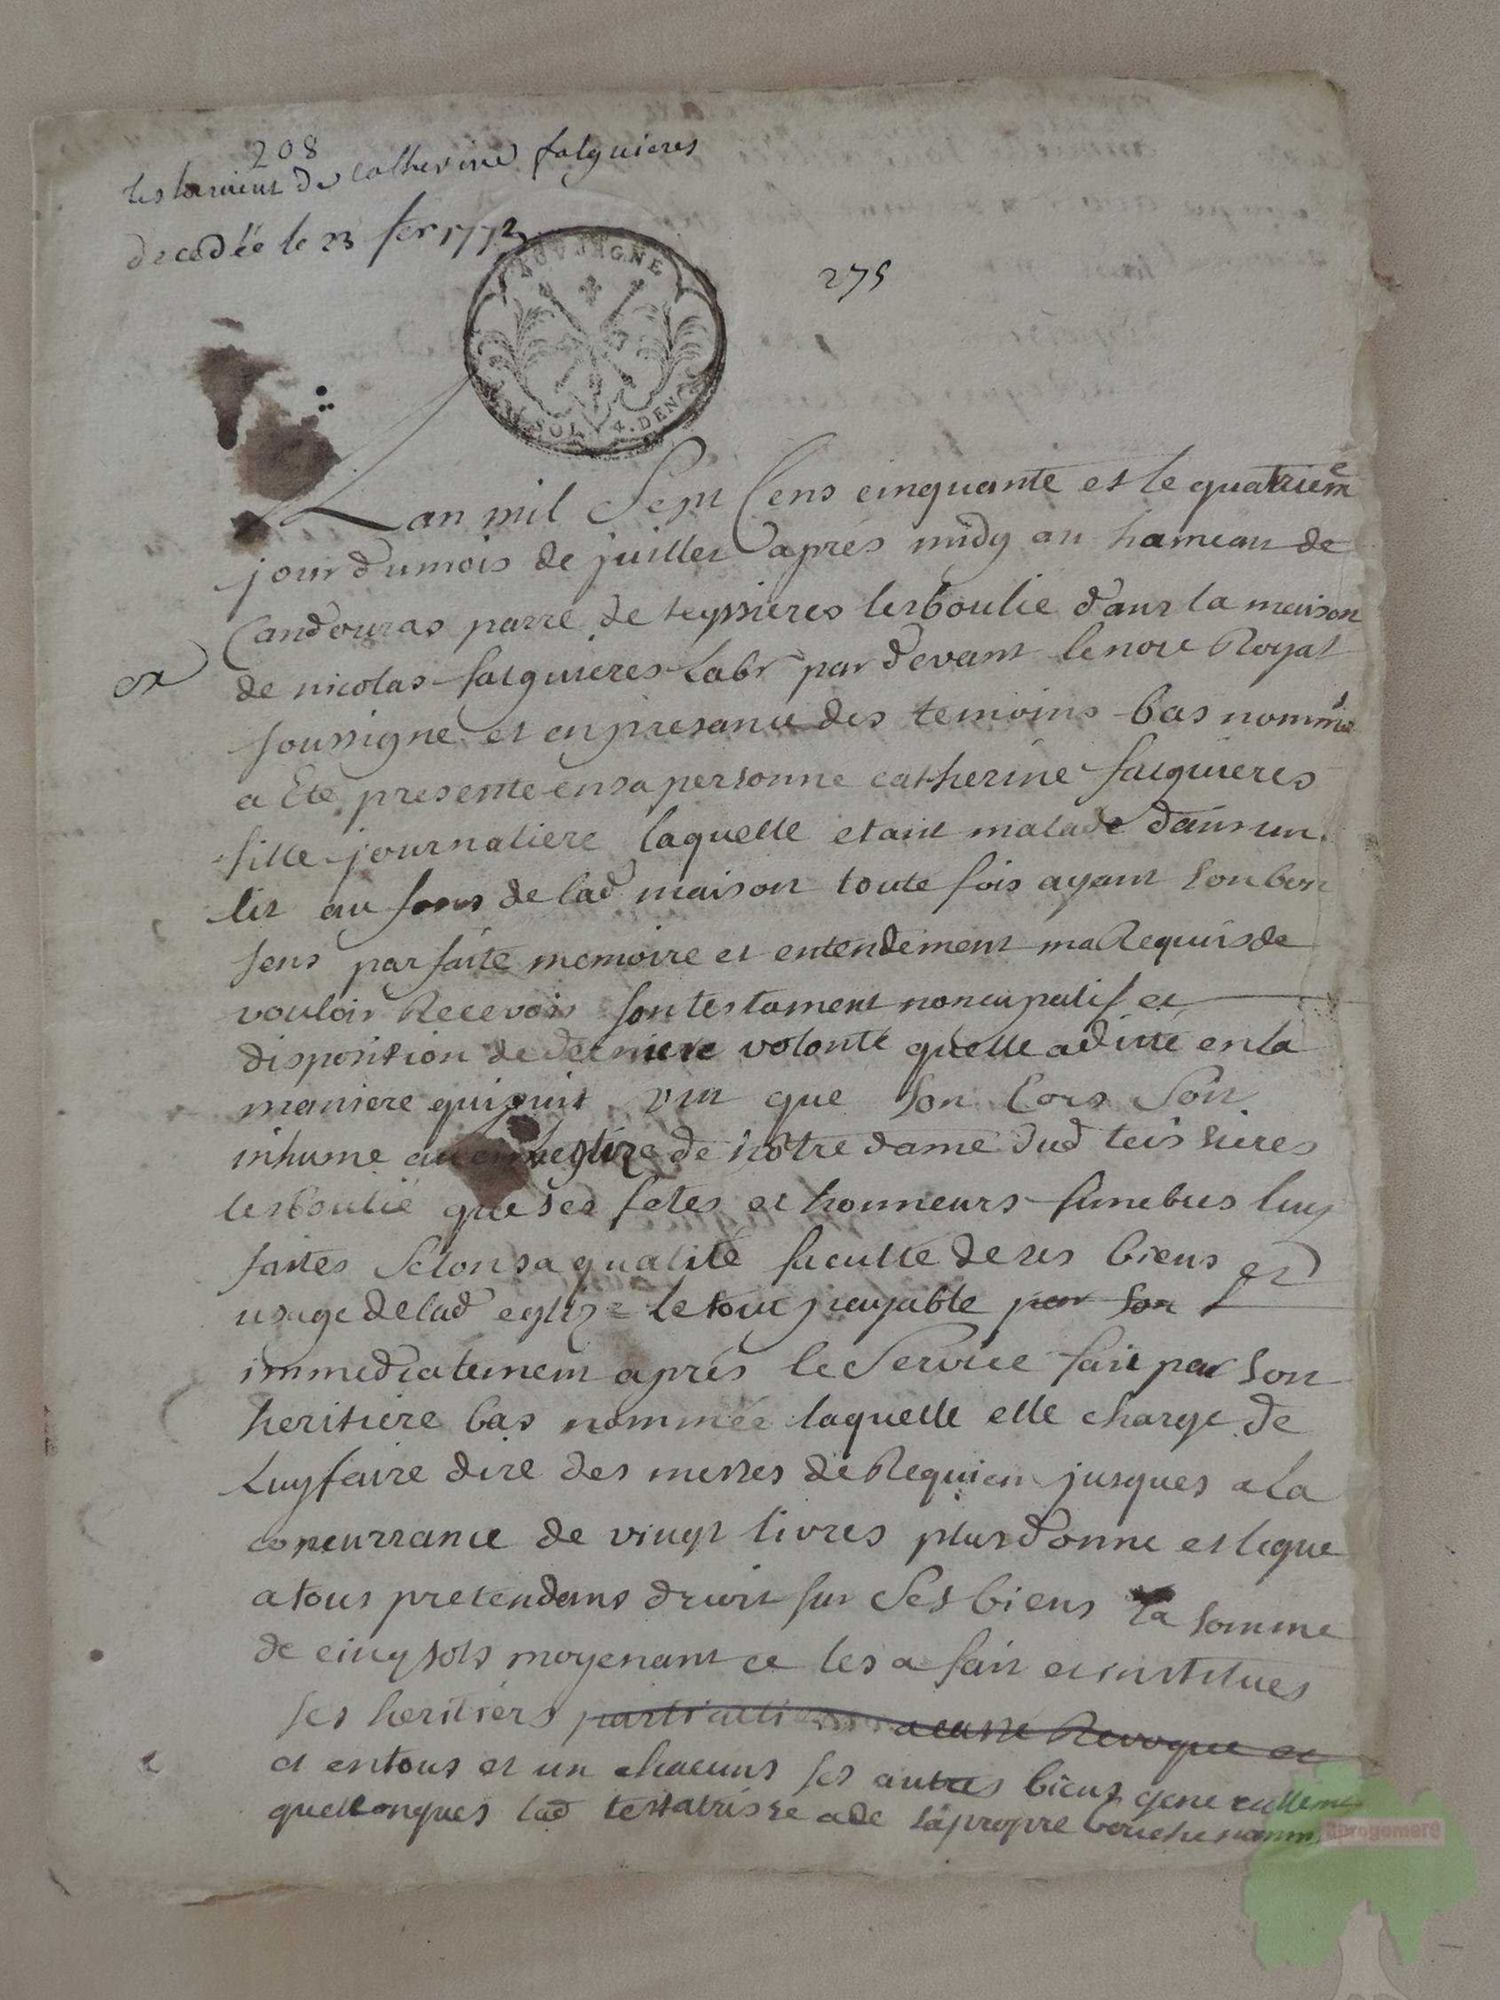 208
testament de catherine falguieres
decedée le 23 fer 1772
ROVERGNE
SOL 4. DEN
275
Lan mil Sept Cens cinquante et le quatrieme
jour dumois de juillet aprés midy au hameau de
Candouras parre de teyssieres lesboulie dans la maison
de nicolas falguieres Labr par devant le nore Royal
ex
soussigne et enpresance des temoins bas nommés
a Eté presente ensa personne catherine falguieres
fille journaliere laquelle etant malade dansun
lit au fons de lad maison toute fois ayant sonbon
sens parfaite memoire et entendement ma Requis de
vouloir Recevoir son testament noncupatif et
disposition de derniere volonté quelle aditte enla
maniere quisuit que son Cors Soit
inhume de notre dame dud teissieres
lesboulié que ses fetes et honneurs funebres luy
faites Selonsa qualité faculté de ses biens et
usage delad eglize le tout payable par son
immediatement aprés le Service fait par son
heritiere bas nommée laquelle elle charge de
Luyfaire dire des messes de Requiem jusques a la
concurrance de vingt livres plusdonne et legue
atous pretendans droit sur Ses biens la somme
de cinq sols moyenant ce les a fait et institues
ses heritiérs particuliers acassé Revoque et
et entous et un chacuns ses autres biens generallement
quelconques lad testatrisse ade sapropre bouche nomm
progomere